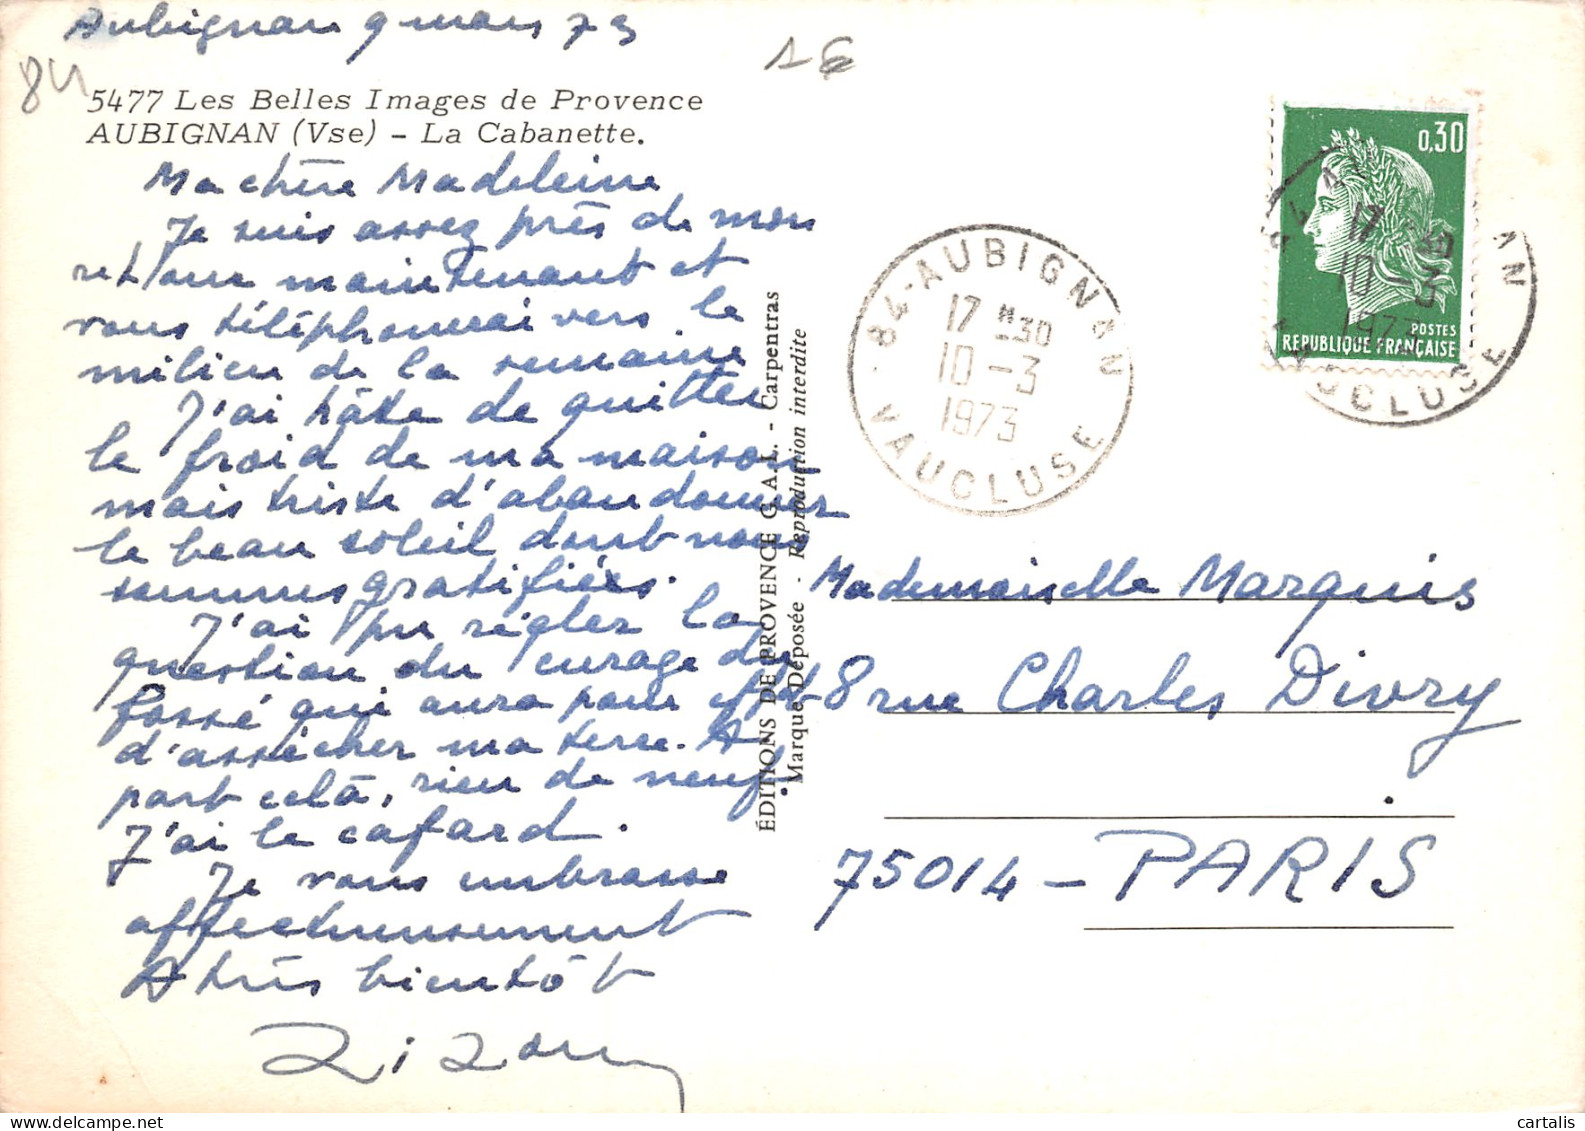 Aubignan 9 mars 73
84
16
5477 Les Belles Images de Provence
AUBIGNAN (Vse) - La Cabanette.
Ma chère Madeleine
Je suis assez près de mon
retour maintenant et
vous téléphonerai vers le
milieu de la semaine
J'ai hâte de quitter
le froid de ma maison
mais triste d'abandonner
le beau soleil dont nous
sommes gratifiées.
J'ai pu régler la
question du curage du
fossé qui aura pour effet
d'assécher ma terre. A
part celà, rien de neuf.
J'ai le cafard.
Je vous embrasse
affectueusement
A très bientôt
ÉDITIONS DE PROVENCE G.A.L. - Carpentras
Marque Déposée - Reproduction interdite
84-AUBIGNAN
17 H30
10-3
1973
VAUCLUSE
0,30
POSTES
REPUBLIQUE FRANÇAISE
17 30
10-3
1973
VAUCLUSE
Mademoiselle Marquis
8 rue Charles Divry
75014 - PARIS
cartalis